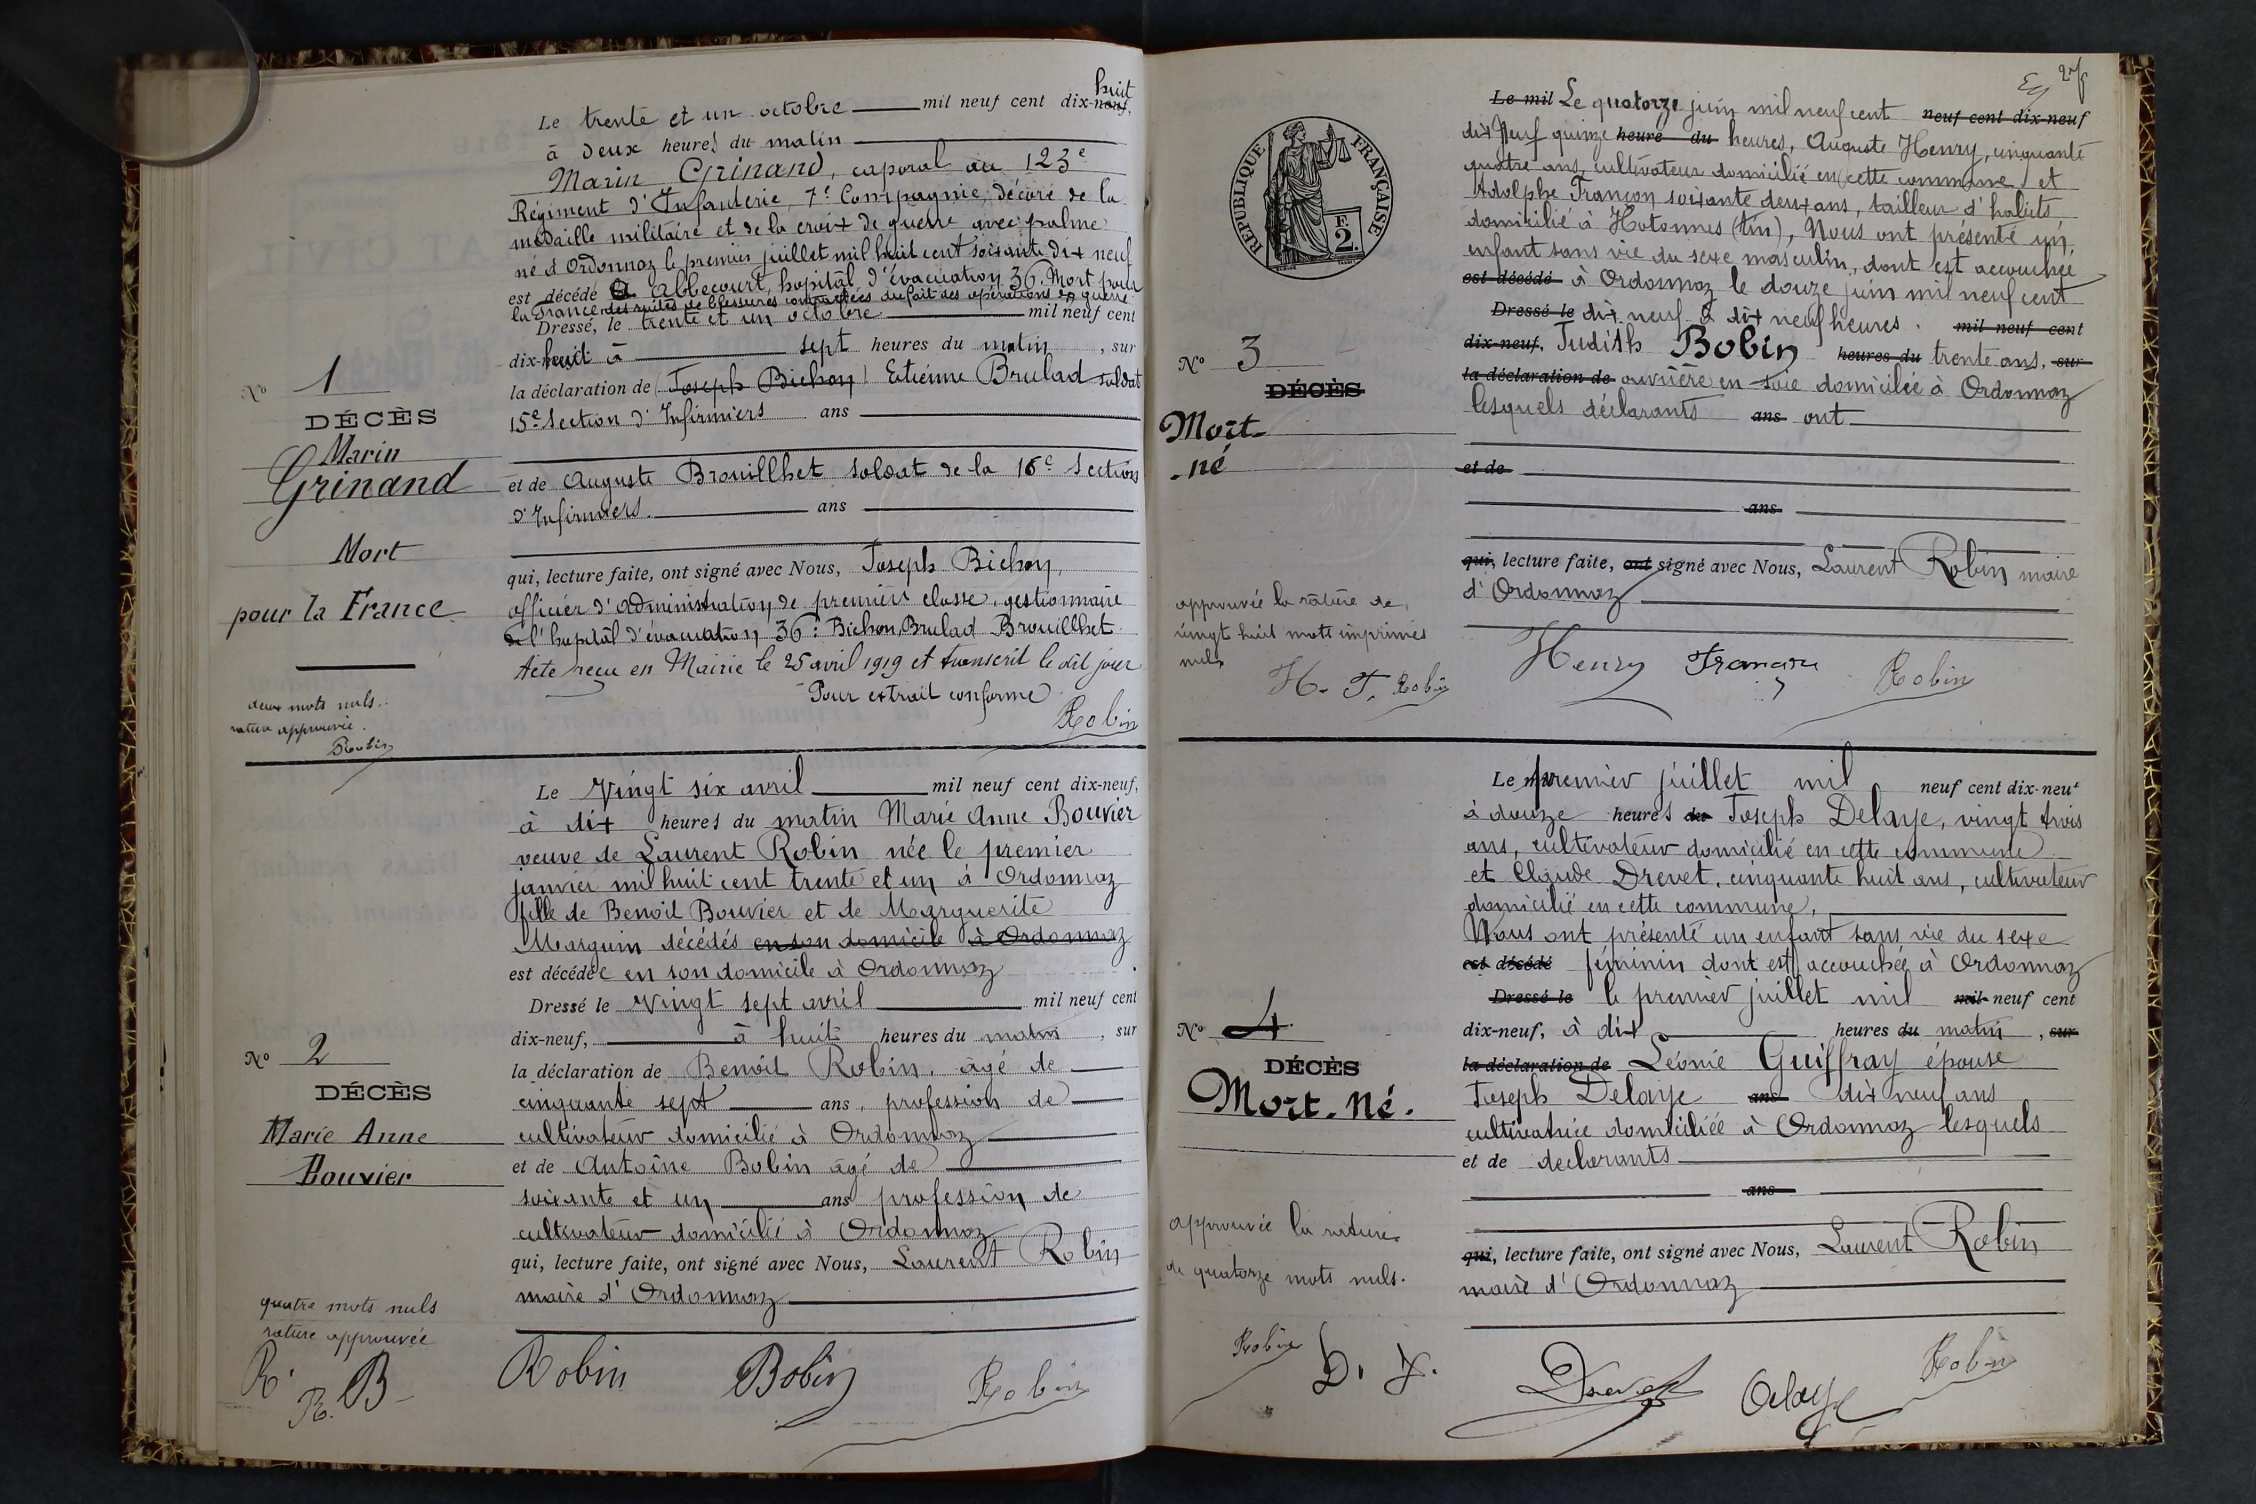 huit
Le trente et un octobre mil neuf cent dix-neuf,
à deux heures du matin
Marin Grinand, caporal au 123e
Régiment d'Infanterie, 7e Compagnie, décoré de la
médaille militaire et de la croix de guerre avec palme
né à Ordonnaz le premier juillet mil huit cent soixante dix neuf
est décédé à Abbecourt, hopital d'évacuation 36. Mort pour
la France des suites de blessures contractées du fait des opérations de guerre
Dressé, le trente et un octobre mil neuf cent
dix-huit à sept heures du matin, sur
la déclaration de Joseph Bichon Etienne Brulad soldat
15e Section d'Infirmiers ans
et de Auguste Brouillhet soldat de la 16e Section
d'Infirmiers. ans
qui, lecture faite, ont signé avec Nous, Joseph Bichon,
officier d'administration de premier classe, gestionnaire
de l'hopital d'évacuation 36: Bichon, Brulad Brouillhet
Acte reçu en Mairie le 25 avril 1919 et transcrit le dit jour
Pour extrait conforme
Robin
No 1
DÉCÈS
Marin
Grinand
Mort
pour la France
deux mots nuls.
rature approuvée.
Robin
Le Vingt six avril mil neuf cent dix-neuf,
à dix heures du matin Marie Anne Bouvier
veuve de Laurent Robin née le premier
janvier mil huit cent trente et un à Ordonnaz
fille de Benoit Bouvier et de Marguerite
Marguin décédés en son domicile à Ordonnaz
est décédée en son domicile à Ordonnaz
Dressé le Vingt sept avril mil neuf cent
dix-neuf, à huit heures du matin, sur
la déclaration de Benoit Robin, âgé de
cinquante sept ans, profession de
cultivateur domicilié à Ordonnaz
et de Antoine Bobin âgé de
soixante et un ans profession de
cultivateur domicilié à Ordonnaz
qui, lecture faite, ont signé avec Nous, Laurent Robin
maire d'Ordonnaz
No 2
DÉCÈS
Marie Anne
Bouvier
quatre mots nuls
rature approuvée
R. R. B
Robin Bobin Robin
27
Le mil Le quatorze juin mil neuf cent neuf cent dix-neuf
dix Neuf quinze heure du heures, Auguste Henry, cinquante
quatre ans, cultivateur domicilié en cette commune et
Adolphe Françon soixante deux ans, tailleur d'habits,
domicilié à Hotonnes (Ain), Nous ont présenté un
enfant sans vie du sexe masculin, dont est accouchée
est décédé à Ordonnaz le douze juin mil neuf cent
Dressé le dix neuf à dix neuf heures. mil neuf cent
dix-neuf, Judith Bobin heures du trente ans, sur
la déclaration de ouvrière en soie domiciliée à Ordonnaz
lesquels déclarants ans ont
et de
ans
qui, lecture faite, ont signé avec Nous, Laurent Robin maire
d'Ordonnaz
Henry Françon Robin
REPUBLIQUE FRANÇAISE
E.
2.
No 3
DÉCÈS
Mort-
-né
approuvée la rature de
vingt huit mots imprimés
nuls
H. F. Robin
Le premier juillet mil neuf cent dix-neuf
à douze heures du Joseph Delaye, vingt trois
ans, cultivateur domicilié en cette commune
et Claude Drevet, cinquante huit ans, cultivateur
domicilié en cette commune,
Nous ont présenté un enfant sans vie du sexe
est décédé féminin dont est accouchée à Ordonnaz
Dressé le le premier juillet mil mil neuf cent
dix-neuf, à dix heures du matin, sur
la déclaration de Léonie Guiffray épouse
Joseph Delaye ans dix neuf ans
cultivatrice domiciliée à Ordonnaz lesquels
et de déclarants
ans
qui, lecture faite, ont signé avec Nous, Laurent Robin
maire d'Ordonnaz
No 4
DÉCÈS
Mort-Né.
approuvée la rature
de quatorze mots nuls.
Robin D. J.
Drevet Delaye Robin